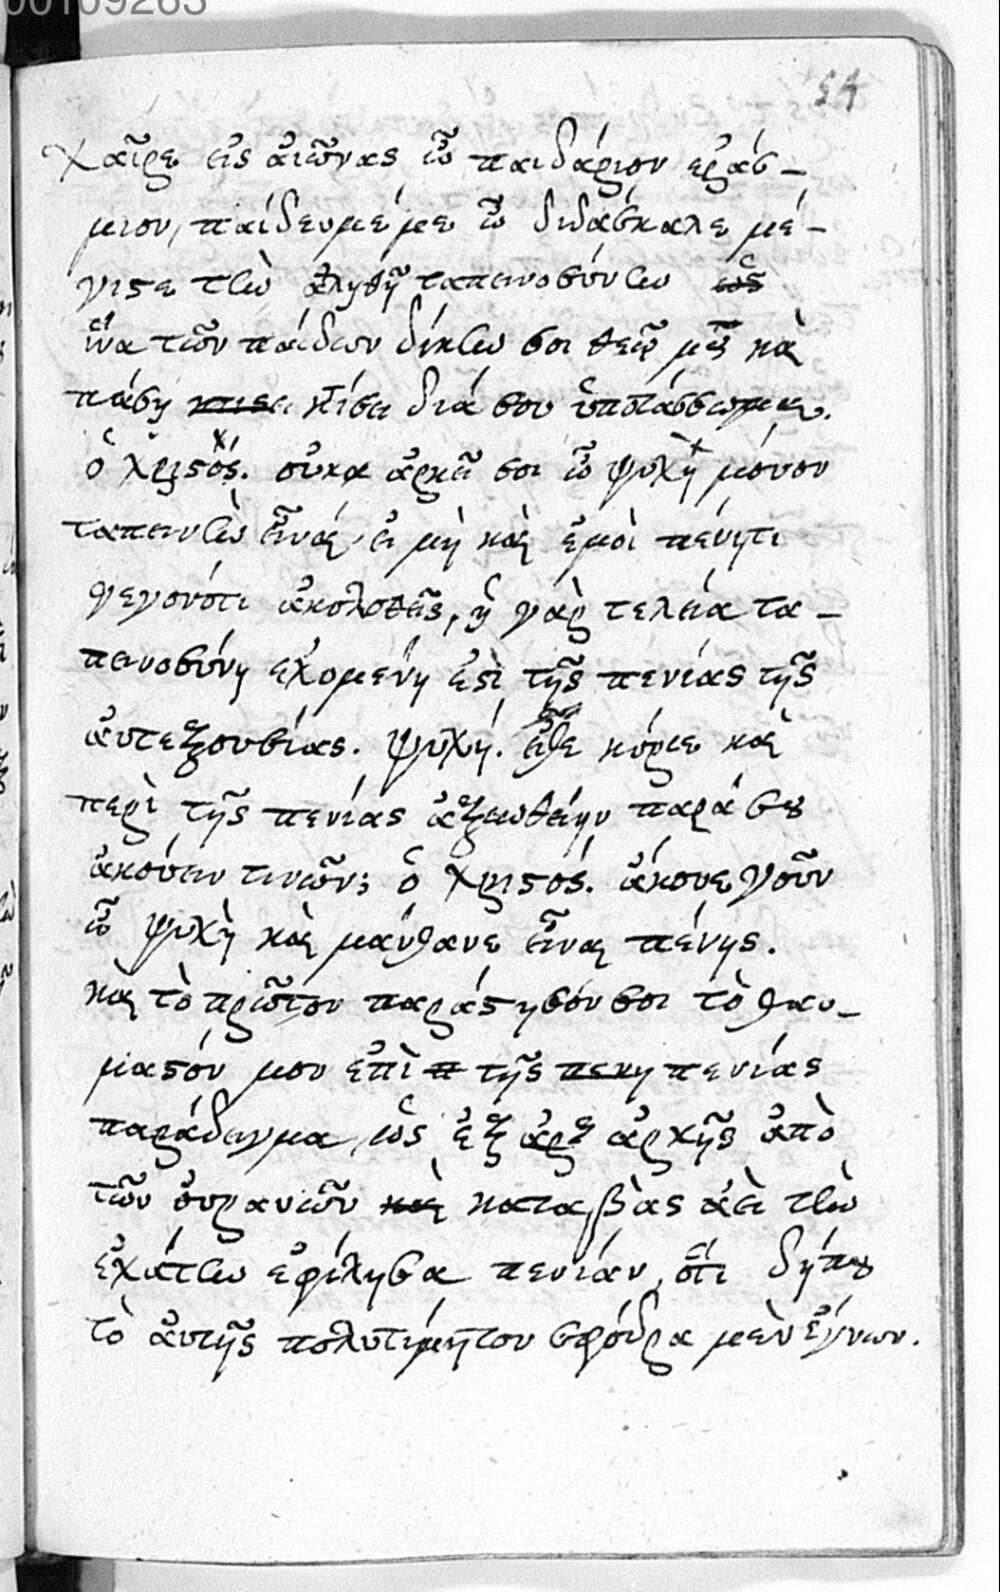 00109263
54
χαῖρε εἰς ἀιῶνας ὦ παιδάριον ἐράσ-
μιον, παίδευμέ με ὦ διδάσκαλε μέ-
γιστε τὴν ἀληθῆ ταπεινοσύνην ὡς
ἵνα τῶν παίδων δίκην σοι θεῷ μου καὶ
πάσῃ κτίσει διά σου ὑποτάσσωμαι.
ὁ χριστός. οὐκ ἀρκεῖ σοι ὦ ψυχὴ μόνον
ταπεινὴν εἶναι, εἰ μὴ καὶ ἐμοὶ πένητι
γεγονότι ἀκολουθεῖς, ἡ γὰρ τελεία τα-
πεινοσύνη εχομένη ἐστὶ τῆς πενίας τῆς
ἀυτεξουσίας. ψυχή. εἴθε κύριε καὶ
περὶ τῆς πενίας ἀξιωθείην παρά σου
ἀκούειν τινῶν; ὁ χριστός. ἄκουε γοῦν
ὦ ψυχὴ καὶ μάνθανε εἶναι πένης.
καὶ τὸ πρῶτον παράστησόν σοι τὸ θαυ-
μαστόν μου ἐπὶ π τῆς πενη πενίας
παράδειγμα, ὡς ἐξ ἀρξ ἀρχῆς ἀπὸ
τῶν ὀυρανῶν καὶ καταβὰς ἀεὶ τὴν
ἐχάτην ἐφίλησα πενίαν, ὅτι δήπου
τὸ ἀυτῆς πολυτίμητον σφόδρα μὲν ἔγνων.